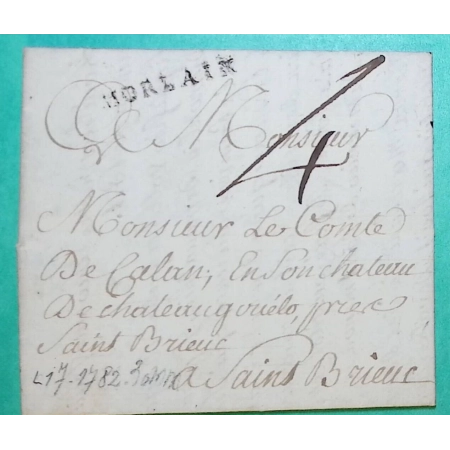 MORLAIX
4
Monsieur
Monsieur Le Comte
De Calan, En Son chateau
De chateaugoüélo, prex
Saint Brieuc
a Saint Brieuc
L17. 1782.